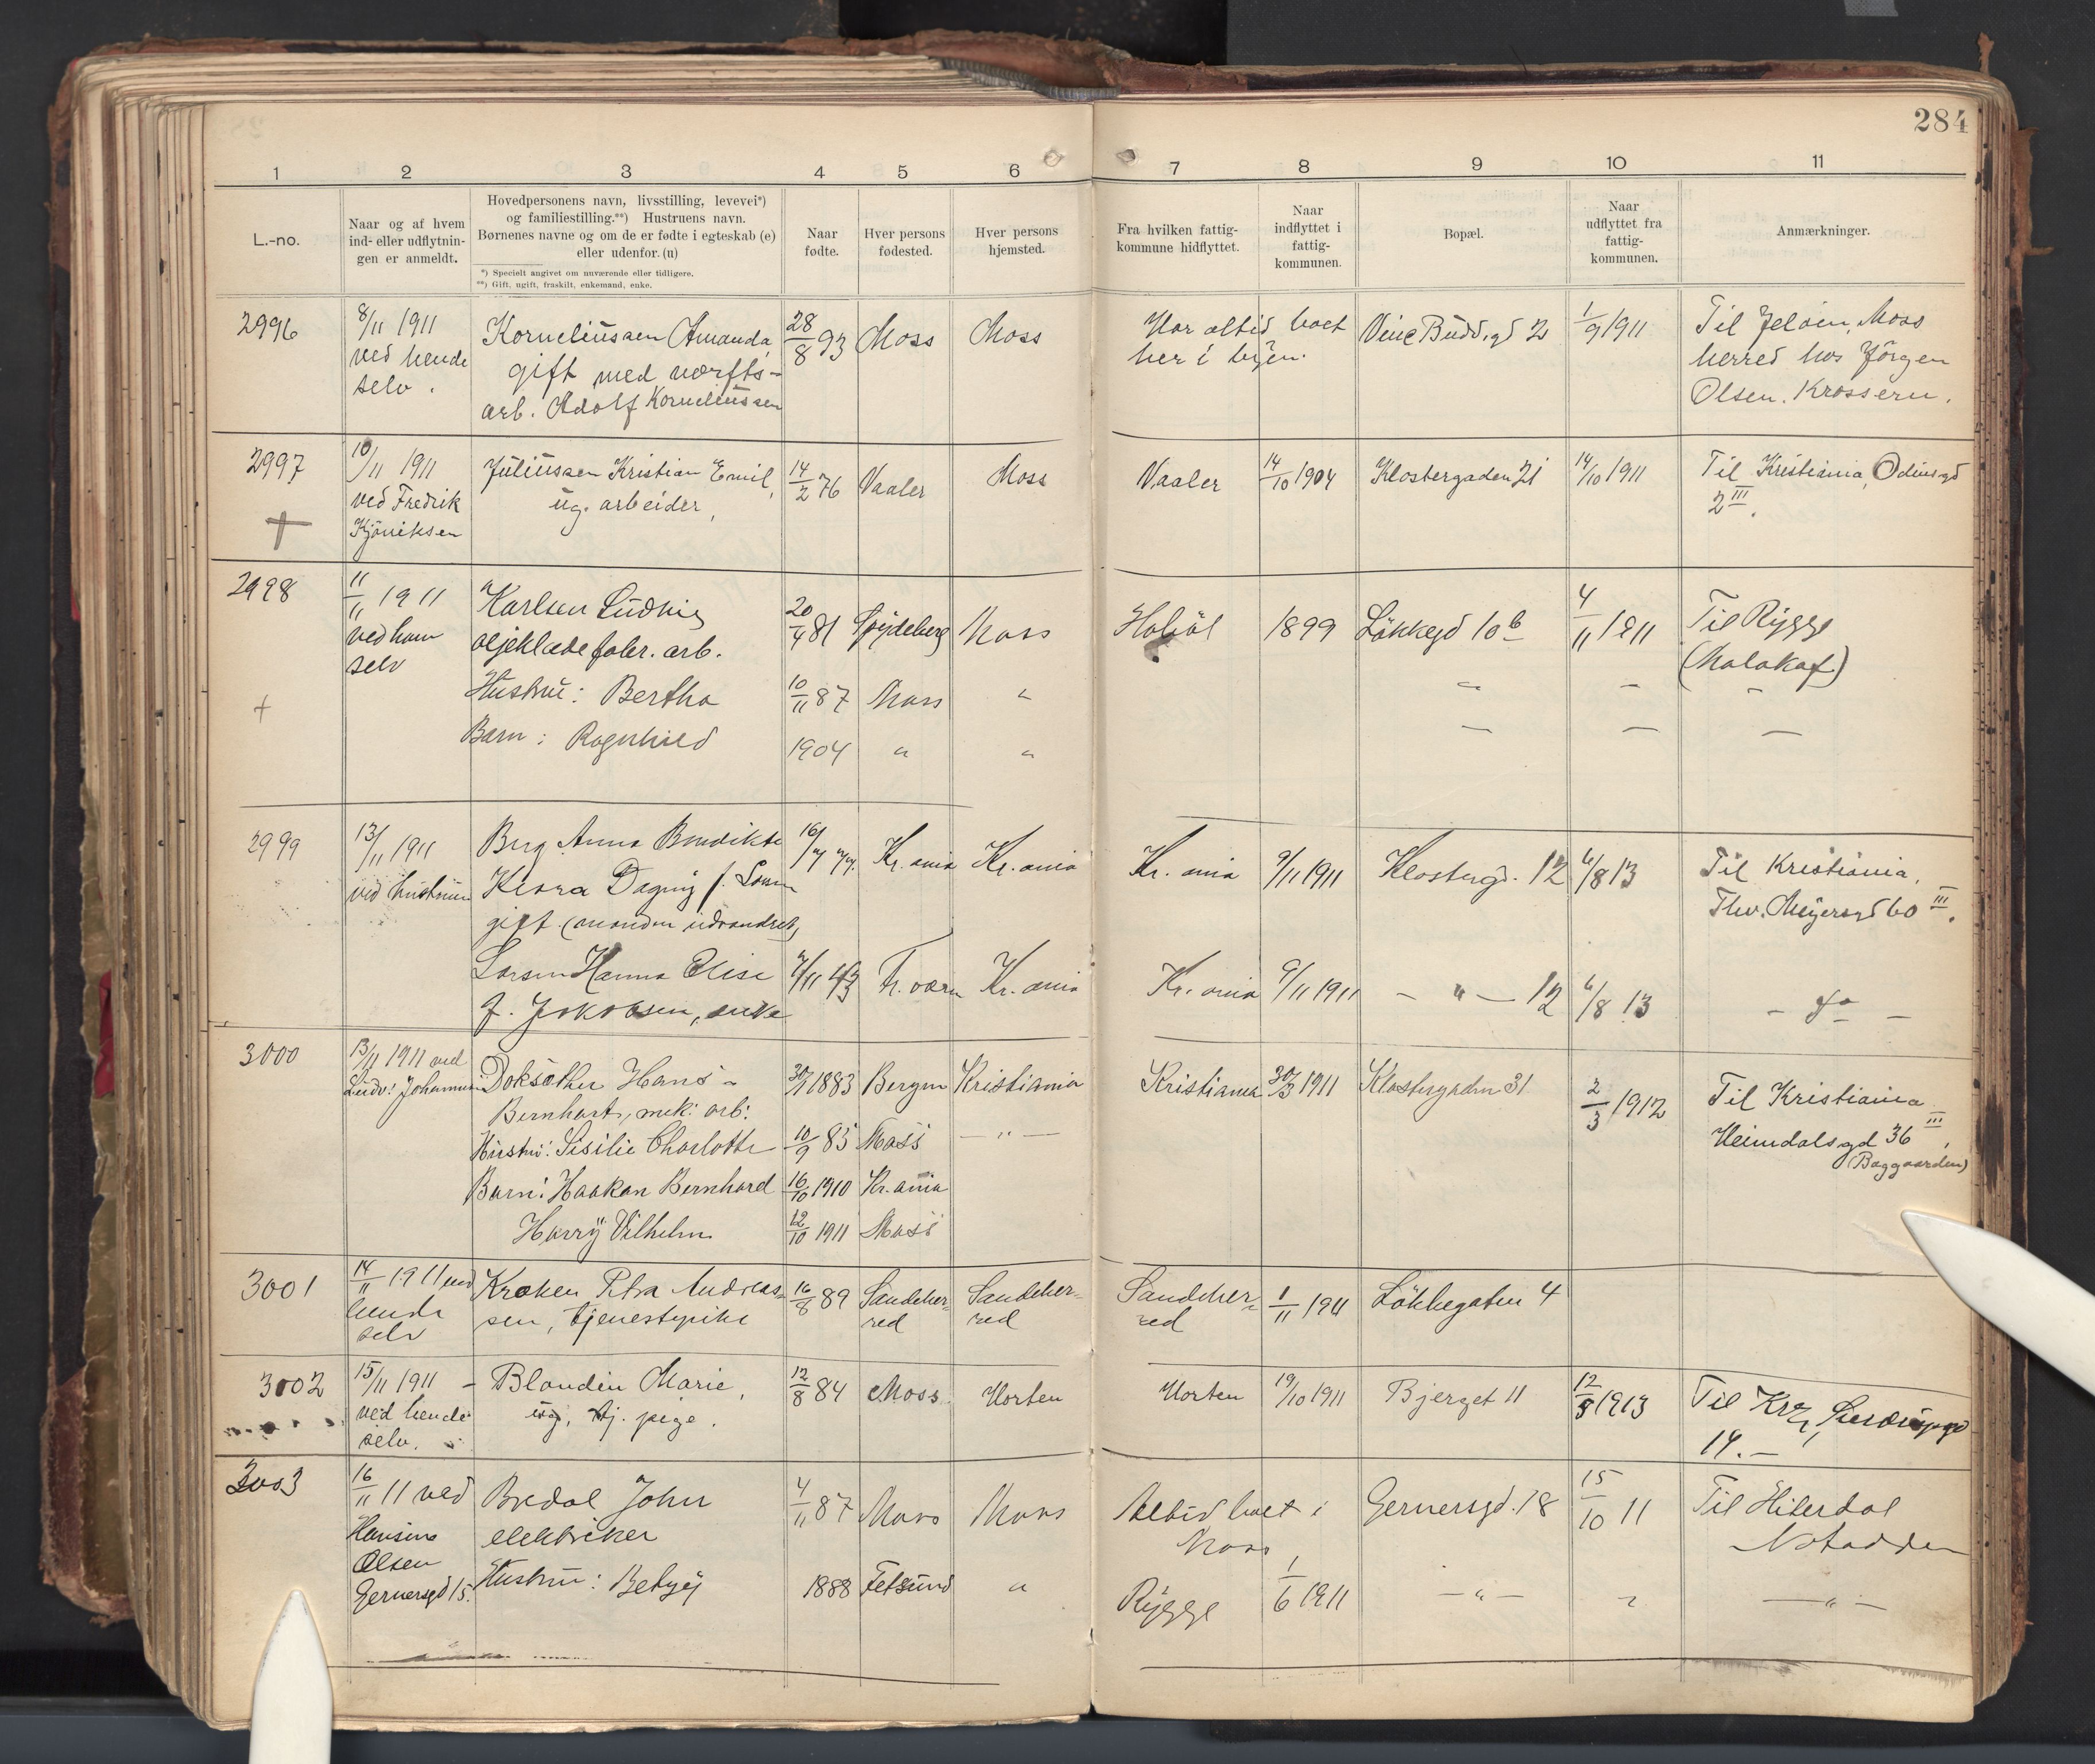 284
1 2 3 4 5 6 7 8 9 10 11
L.-no.
Naar og af hvem
ind- eller udflytnin-
gen er anmeldt.
Hovedpersonens navn, livsstilling, levevei*)
og familiestilling.**) Hustruens navn.
Børnenes navne og om de er fødte i egteskab (e)
eller udenfor. (u)
*) Specielt angivet om nuværende eller tidligere.
**) Gift, ugift, fraskilt, enkemand, enke.
Naar
fødte.
Hver persons
fødested.
Hver persons
hjemsted.
Fra hvilken fattig-
kommune hidflyttet.
Naar
indflyttet i
fattig-
kommunen.
Bopæl.
Naar
udflyttet fra
fattig-
kommunen.
Anmærkninger.
2996
8/11 1911
ved hende
selv.
Korneliussen Amanda,
gift med værfts-
arb. Adolf Korneliussen
28/8 93
Moss
Moss
Har altid boet
her i byen.
Vinc Budd.gd 2
1/9 1911
Til Jeløen, Moss
herred hos Jörgen
Olsen. Krossern.
2997
10/11 1911
ved Fredrik
Kjöniksen
Juliussen Kristian Emil,
ug. arbeider,
14/2 76
Vaaler
Moss
Vaaler
14/10 1904
Klostergaden 21
14/10 1911
Til Kristiania, Odinsgd
2 III.
2998
11/11 1911
ved ham
selv
Karlsen Ludvig
oljeklædefabr. arb.
20/4 81
Spydeberg
Moss
Hobøl
1899
Løkkegd 10 b
4/11 1911
Til Rygge
(Malakof)
Hustru: Bertha
10/11 87
Moss
"
Barn: Ragnhild
1904
"
"
2999
13/11 1911
ved hustruen
Berg Anna Bendikte
Kisra Dagny f. Larsen
gift (manden udvandret)
16/7 77.
Kr.ania
Kr.ania
Kr.ania
9/11 1911
Klostergd. 12
6/8 13
Til Kristiania,
Thv. Meyersgd 60 III.
Larsen Hanna Elise
f. Jakobsen, enke
7/11 43
Fr.værn
Kr.ania
Kr.ania
9/11 1911
- " - 12
6/8 13
- do -
3000
13/11 1911 ved
Ludv: Johannesen
Doksæther Hans -
Bernhart, mek: arb:
30/1 1883
Bergen
Kristiania
Kristiania
30/3 1911
Klostergaden 31
2/3 1912
Til Kristiania
Heimdalsgd 36 III,
(Baggaarden)
Hustru: Sisilie Charlotte
10/9 85
Moss
- " -
Barn: Haakon Bernhard
16/10 1910
Kr.ania
Harry Vilhelm
12/10 1911
Moss
3001
14/11 1911 ved
hende
selv
Kroken Petra Andreas-
sen, tjenestepike
16/8 89
Sandeher-
red
Sandeher-
red
Sandeher-
red
1/11 1911
Løkkegaten 4
3002
15/11 1911
ved hende
selv.
Blondin Marie,
ug. tj. pige.
12/8 84
Moss
Horten
Horten
19/10 1911
Bjerget 11
12/3 1913
Til Kra,
14.-
3003
16/11 11 ved
Hansine
Olsen
Gernersgd 15.
Bredal John
elektriker
4/11 87
Moss
Moss
Altid boet i
Moss
Gernersgd. 18
15/10 11
Til Hiterdal
Notodden
Hustru: Betzy
1888
Fetsund
"
Rygge
1/6 1911
- " -
"
- " -